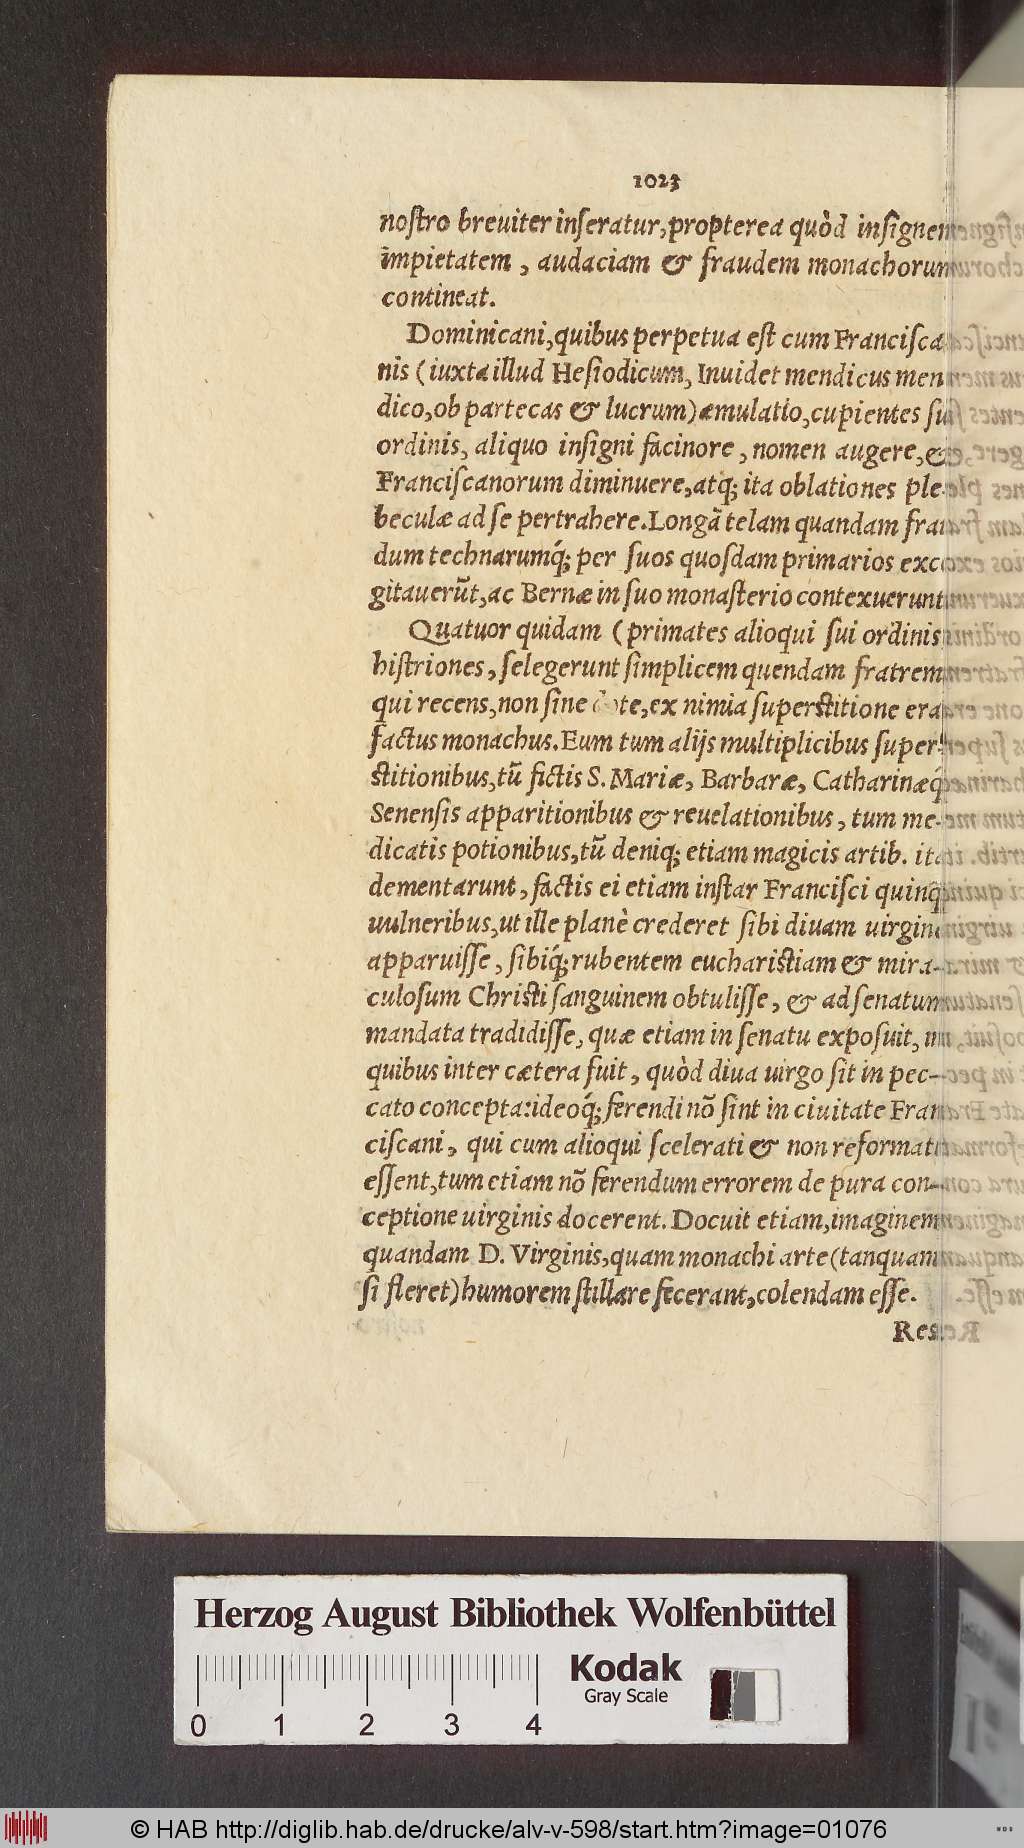 1023
nostro breuiter inseratur, propterea quòd insignem
impietatem, audaciam & fraudem monachorum
contineat.
Dominicani, quibus perpetua est cum Francisca
nis (iuxta illud Hesiodicum, Inuidet mendicus men
dico, ob partecas & lucrum) æmulatio, cupientes sui
ordinis, aliquo insigni facinore, nomen augere, &
Franciscanorum diminuere, atq; ita oblationes ple-
beculæ ad se pertrahere. Longã telam quandam frau
dum technarumq́; per suos quosdam primarios exco
gitauerũt, ac Bernæ in suo monasterio contexuerunt.
Quatuor quidam (primates alioqui sui ordinis
histriones, selegerunt simplicem quendam fratrem
qui recens, non sine dote, ex nimia superstitione erat
factus monachus. Eum tum alijs multiplicibus super-
stitionibus, tũ fictis S. Mariæ, Barbaræ, Catharinæq́;
Senensis apparitionibus & reuelationibus, tum me-
dicatis potionibus, tũ deniq; etiam magicis artib. ita
dementarunt, factis ei etiam instar Francisci quinq;
uulneribus, ut ille planè crederet sibi diuam uirginem
apparuisse, sibiq́; rubentem eucharistiam & mira-
culosum Christi sanguinem obtulisse, & ad senatum
mandata tradidisse, quæ etiam in senatu exposuit, in
quibus inter cætera fuit, quòd diua uirgo sit in pec-
cato concepta: ideoq́; ferendi nõ sint in ciuitate Fran
ciscani, qui cum alioqui scelerati & non reformati
essent, tum etiam nõ ferendum errorem de pura con-
ceptione uirginis docerent. Docuit etiam, imaginem
quandam D. Virginis, quam monachi arte (tanquam
si fleret) humorem stillare fecerant, colendam esse.
Res
Herzog August Bibliothek Wolfenbüttel
Kodak
Gray Scale
0 1 2 3 4
© HAB http://diglib.hab.de/drucke/alv-v-598/start.htm?image=01076